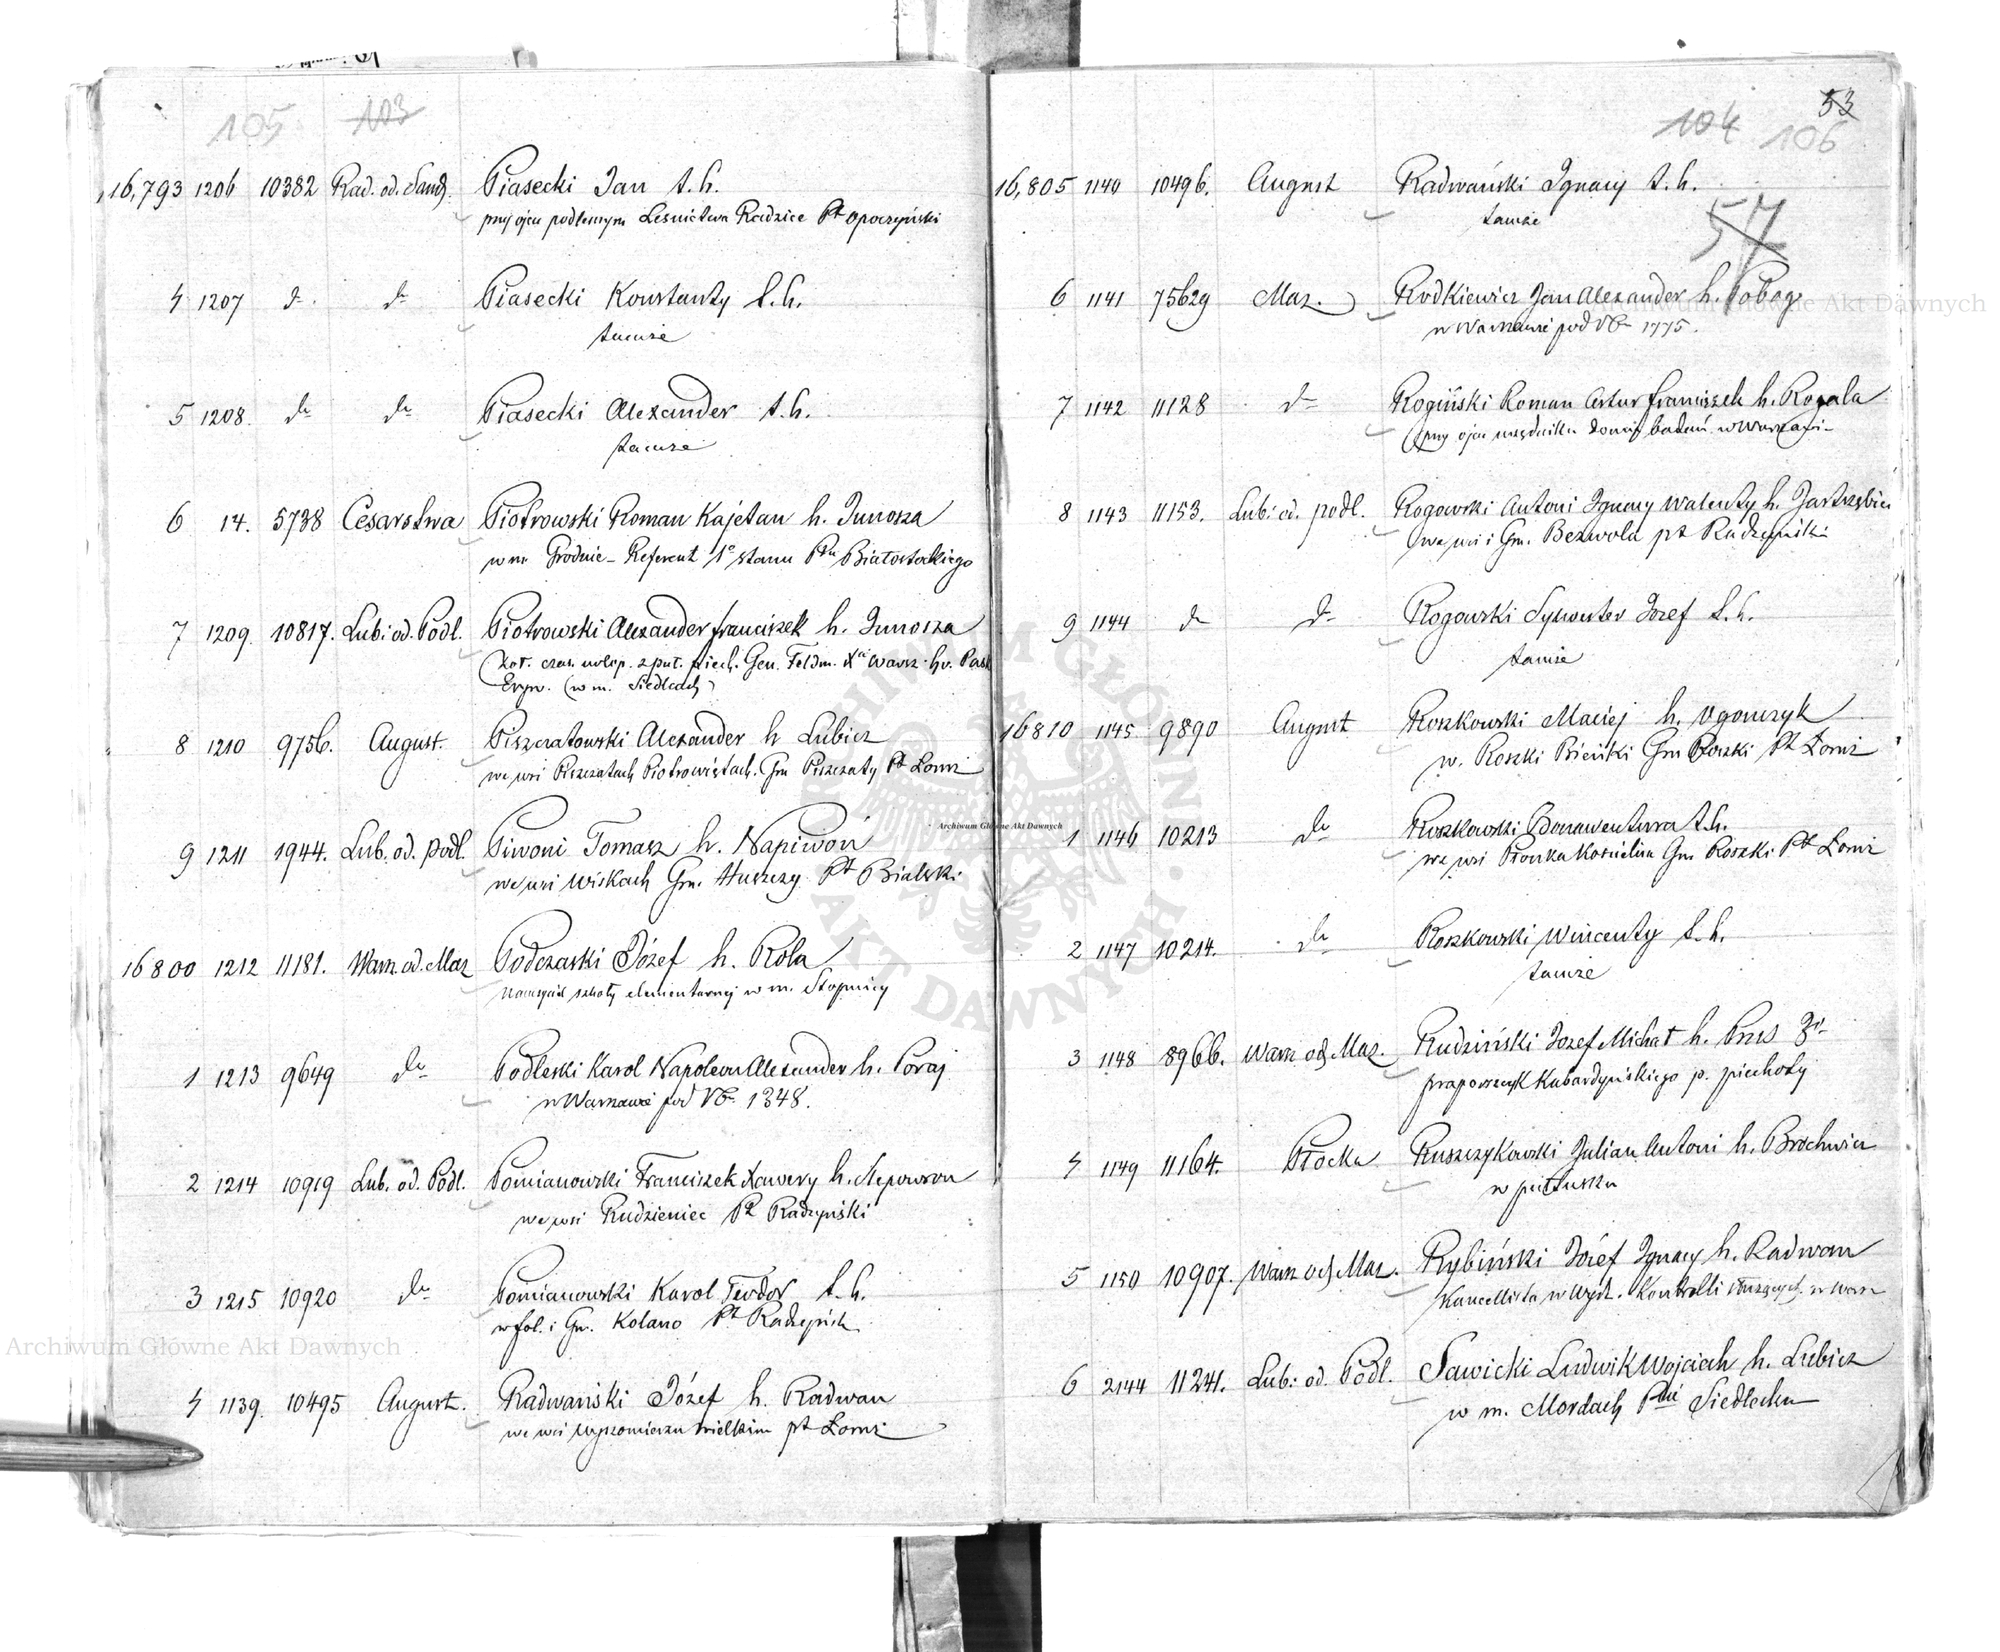 105 103
16,793 1206 10382 Rad. od. Sand. Piasecki Jan t. h.
przy ojcu podleśnym Leśnictwa Radzice Pt Opoczyński
4 1207 do. do Piasecki Konstanty t. h.
tamże
5 1208. do do Piasecki Alexander t. h.
tamże
6 14. 5738 Cesarstwa Piotrowski Roman Kajetan h. Junosza
w m. Grodnie - Referent 1o stanu Ptu Białostockiego
7 1209. 10817. Lub: od. Podl. Piotrowski Alexander franciszek h. Junosza
żoł. czas. urlop. z puł. piech. Gen. Feldm. Xcia Warsz. hr. Pask
Eryw. (w m. Siedlcach)
8 1210 9756. August. Piszczatowski Alexander h Lubicz
we wsi Piszczatach Piotrowiętach. Gm Piszczaty Pt Łomż
9 1211 1944. Lub. od. Podl. Piwoni Tomasz h. Napiwoń
we wsi Wiskach Gm. Huszczy Pt Bialski
16800 1212 11181. Warsz od. Maz Podczaski Józef h. Rola
Nauczyciel szkoły elementarnej w m. Stopnicy
1 1213 9649 do Podleski Karol Napoleon Alexander h. Poraj
w Warszawie pod No 1348.
2 1214 10919 Lub. od. Podl. Pomianowski Franciszek Xawery h. Nepowron
we wsi Rudzieniec Pt Radzyński
3 1215 10920 do Pomianowski Karol Teodor t. h.
w fol. i Gm. Kolano Pt Radzyńsk
4 1139. 10495 August. Radwański Józef h. Radwan
we wsi Wyrzomierzu wielkim pt Łomż
53
104 106
16,805 1140 10496. August Radwański Ignacy t. h.
tamże
57
6 1141 75629 Maz. Rodkiewicz Jan Alexander h. Pobog
w Warszawie pod No 1775.
7 1142 11128 do Rogiński Roman Artur franciszek h. Rogala
przy ojcu urzędniku Komis badań. w Warszawie
8 1143 11153. Lub: od. podl. Rogowski Antoni Ignacy Walenty h. Jastrzębiec
we wsi i Gm. Bezwola pt Radzyński
9 1144 do do Rogowski Sylwester Józef t. h.
tamże
16810 1145 9890 August Roszkowski Maciej h. Ogonczyk
w. Roszki Bieńki Gm Roszki Pt Łomż
1 1146 10213 do Roszkowski Bonawentura t. h.
we wsi Płonka Kościelna Gm Roszki Pt Łomż
2 1147 10214. do Roszkowski Wincenty t. h.
tamże
3 1148 8966. Warsz od Maz. Rudziński Jozef Michał h. Prus
praporszczyk Kabardyńskiego p. piechoty
4 1149 11164. Płocka Ruszczykowski Julian Antoni h. Brochwicz
w pułtusku
5 1150 10907. Warsz od Maz. Rybiński Józef Ignacy h. Radwan
Kancellista w Wydz. Kontrolli służących w Warsz
6 2144 11241. Lub: od. Podl. Sawicki Ludwik Wojciech h. Lubicz
w m. Mordach Ptu Siedlecki
Archiwum Główne Akt Dawnych
Archiwum Główne Akt Dawnych
Archiwum Główne Akt Dawnych
ARCHIWUM GŁÓWNE AKT DAWNYCH